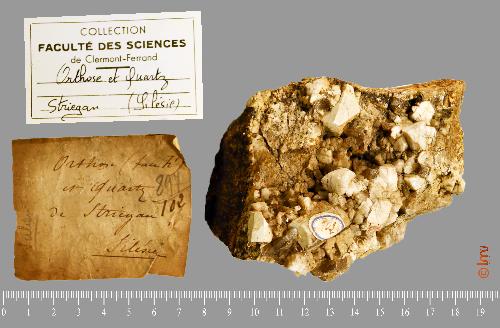 COLLECTION
FACULTÉ DES SCIENCES
de Clermont-Ferrand
Orthose et Quartz
Striegau (Silésie)
Orthose
et Quartz
de Striegau 102
Silésie
0 1 2 3 4 5 6 7 8 9 10 11 12 13 14 15 16 17 18 19
© lmv